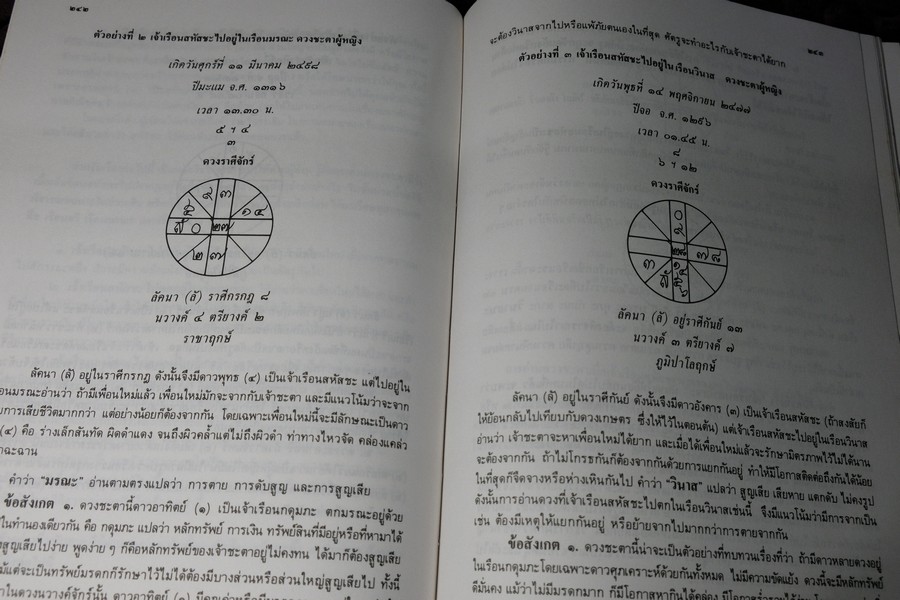 ๒๔๒
ตัวอย่างที่ ๒ เจ้าเรือนสหัสชะไปอยู่ในเรือนมรณะ ดวงชะตาผู้หญิง
เกิดวันศุกร์ที่ ๑๑ มีนาคม ๒๔๙๘
ปีมะแม จ.ศ. ๑๓๑๖
เวลา ๑๓.๓๐ น.
๕ ฯ ๔
๓
ดวงราศีจักร์
ลัคนา (ลั) ราศีกรกฎ ๘
นวางค์ ๔ ตรียางค์ ๒
ราชาฤกษ์
ลัคนา (ลั) อยู่ในราศีกรกฎ ดังนั้นจึงมีดาวพุทธ (๔) เป็นเจ้าเรือนสหัสชะ แต่ไปอยู่ใน
อนมรณะอ่านว่า ถ้ามีเพื่อนใหม่แล้ว เพื่อนใหม่มักจะจากกับเจ้าชะตา และมีแนวโน้มว่าจะจาก
ยการเสียชีวิตมากกว่า แต่อย่างน้อยก็ต้องจากกัน โดยเฉพาะเพื่อนใหม่นี้จะมีลักษณะเป็นดาว
(๔) คือ ร่างเล็กสันทัด ผิดดำแดง จนถึงผิวคล้ำแต่ไม่ถึงผิวดำ ท่าทางไหวจัด คล่องแคล่ว
าฉะฉาน
คำว่า "มรณะ" อ่านตามตรงแปลว่า การตาย การดับสูญ และการสูญเสีย
ข้อสังเกต ๑. ดวงชะตานี้ดาวอาทิตย์ (๑) เป็นเจ้าเรือนกดุมภะ ตกมรณะอยู่ด้วย
ในทำนองเดียวกัน คือ กดุมภะ แปลว่า หลักทรัพย์ การเงิน ทรัพย์สินที่มีอยู่หรือที่หามาได้
สูญเสียไปง่าย พูดง่าย ๆ ก็คือหลักทรัพย์ของเจ้าชะตาอยู่ไม่คงทน ได้มาก็ต้องสูญเสีย
ม้แต่จะเป็นทรัพย์มรดกก็รักษาไว้ไม่ได้ต้องมีบางส่วนหรือส่วนใหญ่สูญเสียไป ทั้งนี้
าในดวงนวางค์จักร์นั้น ดาวอาทิตย์ (๑)
จะต้องวินาสจากไปหรือแพ้ภัยตนเองในที่สุด ศัตรูจะทำอะไรกับเจ้าชะตาได้ยาก
๒๔๓
ตัวอย่างที่ ๓ เจ้าเรือนสหัสชะไปอยู่ในเรือนวินาส ดวงชะตาผู้หญิง
เกิดวันพุธที่ ๑๔ พฤศจิกายน ๒๔๗๗
ปีจอ จ.ศ. ๑๒๙๖
เวลา ๐๑.๔๕ น.
๘
๖ ฯ ๑๒
ดวงราศีจักร์
ลัคนา (ลั) อยู่ราศีกันย์ ๑๓
นวางค์ ๓ ตรียางค์ ๗
ภูมิปาโลฤกษ์
ลัคนา (ลั) อยู่ในราศีกันย์ ดังนั้นจึงมีดาวอังคาร (๓) เป็นเจ้าเรือนสหัสชะ (ถ้าสงสัยก็
ให้ย้อนกลับไปเทียบกับดวงเกษตร ซึ่งให้ไว้ในตอนต้น) แต่เจ้าเรือนสหัสชะไปอยู่ในเรือนวินาส
อ่านว่า เจ้าชะตาจะหาเพื่อนใหม่ได้ยาก และเมื่อได้เพื่อนใหม่แล้วจะรักษามิตรภาพไว้ไม่ได้นาน
จะต้องจากกัน ถ้าไม่โกรธกันก็ต้องจากกันด้วยการแยกกันอยู่ ทำให้มีโอกาสติดต่อถึงกันได้น้อย
ในที่สุดก็จืดจางหรือห่างเหินกันไป คำว่า "วินาส" แปลว่า สูญเสีย เสียหาย แตกดับ ไม่คงรูป
ดังนั้นการอ่านดวงที่เจ้าเรือนสหัสชะไปตกในเรือนวินาสเช่นนี้ จึงมีแนวโน้มว่ามีการจากเป็น
เช่น ต้องมีเหตุให้แยกกันอยู่ หรือย้ายจากไปมากกว่าการตายจากกัน
ข้อสังเกต ๑. ดวงชะตานี้น่าจะเป็นตัวอย่างที่ทบทวนเรื่องที่ว่า ถ้ามีดาวหลายดวงอยู่
ในเรือนกดุมภะโดยเฉพาะดาวศุภเคราะห์ด้วยกันทั้งหมด ไม่มีความขัดแย้ง ดวงนี้จะมีหลักทรัพย์
ดีมั่นคง แม้ว่าไม่มีมรดกมาก ก็มีโอกาสหากินได้คล่อง